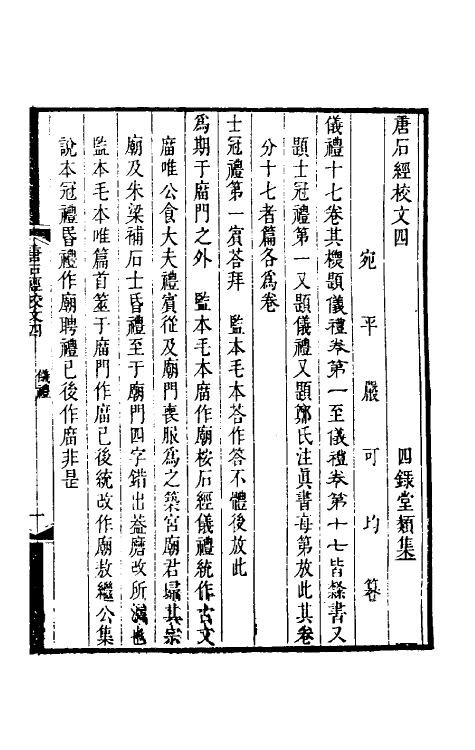 唐石經校文四 四錄堂類集
宛平嚴可均纂
儀禮十七卷其標題儀禮卷第一至儀禮卷第十七皆隸書又
題士冠禮第一又題儀禮又題鄭氏注眞書每第放此其卷
分十七者篇各爲卷
士冠禮第一賓荅拜 監本毛本荅作答不體後放此
爲期于庿門之外 監本毛本庿作廟桉石經儀禮統作古文
庿唯公食大夫禮賓從及廟門喪服爲之築宮廟君埽其宗
廟及朱梁補石士昏禮至于廟門四字錯出葢磨改所滅也
監本毛本唯篇首筮于庿門作庿已後統改作廟敖繼公集
說本冠禮昏禮作廟聘禮已後作庿非是
唐石經校文四 儀禮 一